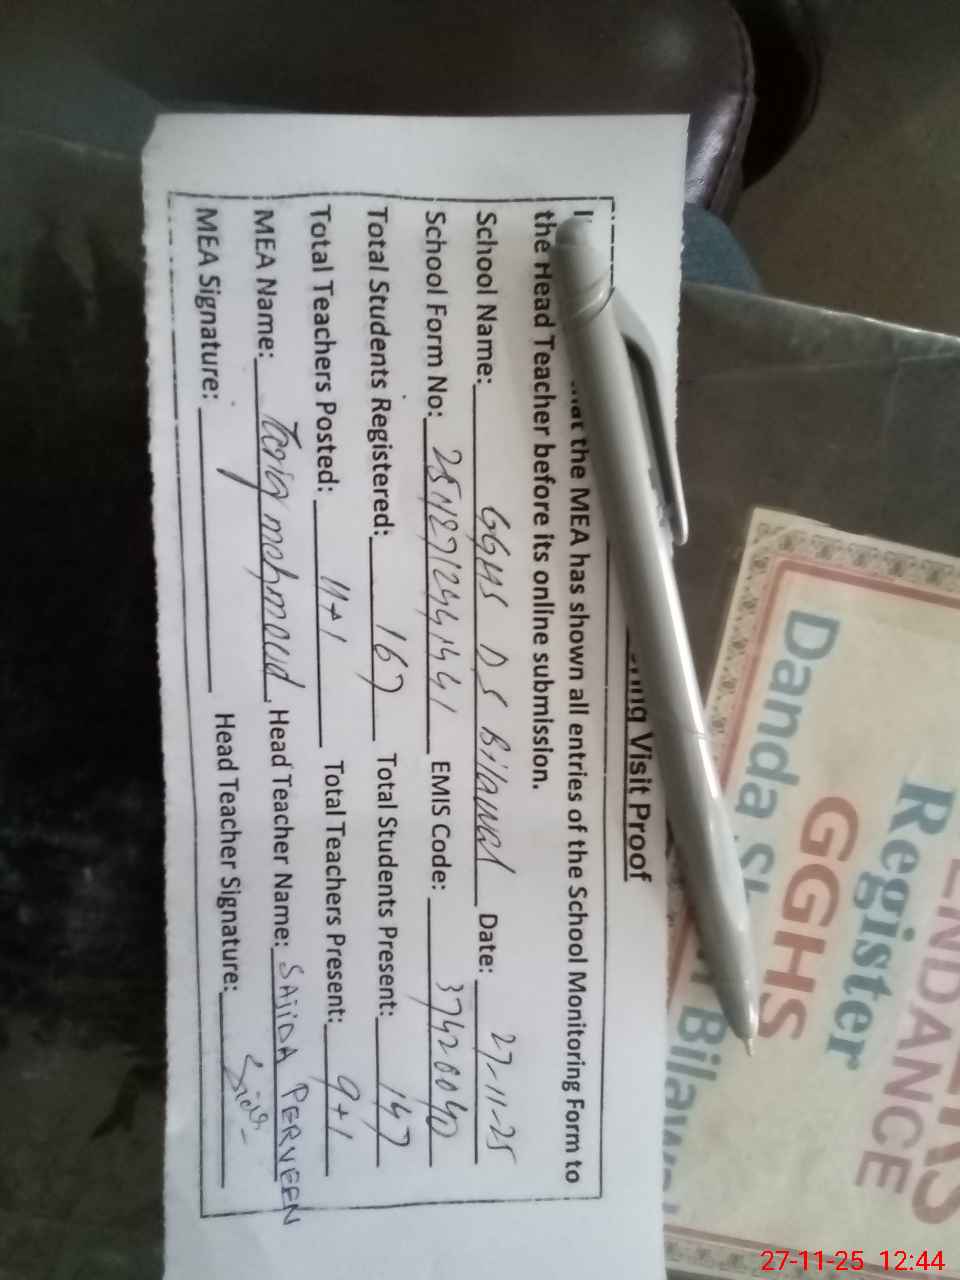 Visit Proof
the MEA has shown all entries of the School Monitoring Form to
the Head Teacher before its online submission.
School Name: GGHS DS Bilawal Date: 27-11-25
School Form No: EMIS Code: 37420040
Total Students Registered: 167 Total Students Present: 147
Total Teachers Posted: 11+1 Total Teachers Present: 9+1
MEA Name: Tariq mehmood Head Teacher Name: SAJIDA PERVEEN
MEA Signature: Head Teacher Signature:
Register
GGHS
Danda
Bilawal
27-11-25 12:44